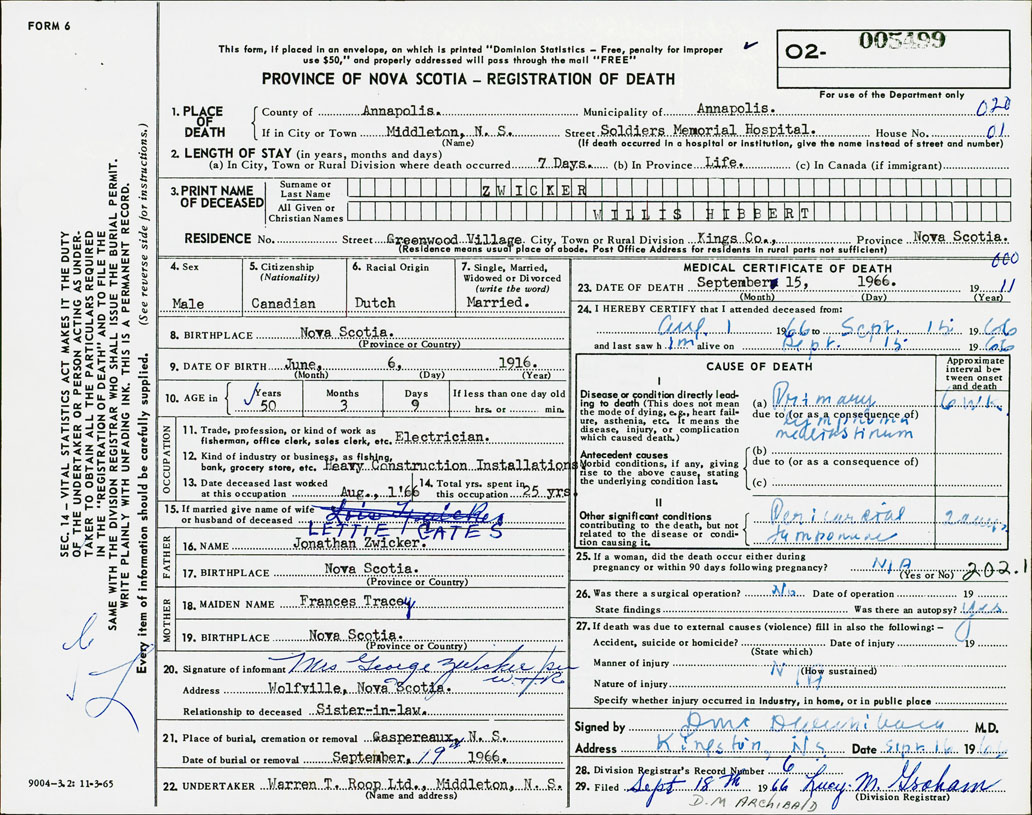 FORM 6
This form, if placed in an envelope, on which is printed "Dominion Statistics – Free, penalty for improper
use $50," and properly addressed will pass through the mail "FREE"
PROVINCE OF NOVA SCOTIA – REGISTRATION OF DEATH
O2- 005499
For use of the Department only
1. PLACE OF DEATH County of Annapolis. Municipality of Annapolis. 020
If in City or Town Middleton, N. S. Street Soldiers Memorial Hospital. House No. 01
(Name) (If death occurred in a hospital or institution, give the name instead of street and number)
2. LENGTH OF STAY (in years, months and days)
(a) In City, Town or Rural Division where death occurred 7 Days. (b) In Province Life. (c) In Canada (if immigrant)
3. PRINT NAME OF DECEASED
Surname or Last Name ZWICKER
All Given or Christian Names WILLIS HIBBERT
RESIDENCE No. Street Greenwood Village City, Town or Rural Division Kings Co., Province Nova Scotia.
(Residence means usual place of abode. Post Office Address for residents in rural parts not sufficient)
4. Sex Male
5. Citizenship (Nationality) Canadian
6. Racial Origin Dutch
7. Single, Married, Widowed or Divorced (write the word) Married.
8. BIRTHPLACE Nova Scotia.
(Province or Country)
9. DATE OF BIRTH June, 6, 1916.
(Month) (Day) (Year)
10. AGE in Years 50 Months 3 Days 9 If less than one day old hrs. or min.
OCCUPATION
11. Trade, profession, or kind of work as fisherman, office clerk, sales clerk, etc. Electrician.
12. Kind of industry or business, as fishing, bank, grocery store, etc. Heavy Construction Installations
13. Date deceased last worked at this occupation Aug., 1'66
14. Total yrs. spent in this occupation 25 yrs.
15. If married give name of wife or husband of deceased
LETTIE GATES
FATHER
16. NAME Jonathan Zwicker.
17. BIRTHPLACE Nova Scotia.
(Province or Country)
MOTHER
18. MAIDEN NAME Frances Tracey
19. BIRTHPLACE Nova Scotia.
(Province or Country)
20. Signature of informant Mrs George Zwicker per
W.H.R
Address Wolfville, Nova Scotia.
Relationship to deceased Sister-in-law.
21. Place of burial, cremation or removal Gaspereaux, N. S.
Date of burial or removal September, 19th 1966.
22. UNDERTAKER Warren T. Roop Ltd., Middleton, N. S.
(Name and address)
MEDICAL CERTIFICATE OF DEATH
000
23. DATE OF DEATH September 15, 1966. 19 11
(Month) (Day) (Year)
24. I HEREBY CERTIFY that I attended deceased from:
Aug 1 1966 to Sept. 15 1966
and last saw him alive on Sept. 15 1966
CAUSE OF DEATH
Approximate interval between onset and death
I
Disease or condition directly leading to death (This does not mean the mode of dying, e.g., heart failure, asthenia, etc. It means the disease, injury, or complication which caused death.)
(a) Primary 6 wk.
due to (or as a consequence of)
lymphoma
mediastinum
Antecedent causes
Morbid conditions, if any, giving rise to the above cause, stating the underlying condition last.
(b)
due to (or as a consequence of)
(c)
II
Other significant conditions contributing to the death, but not related to the disease or condition causing it.
Pericardial 2 days
tamponade
25. If a woman, did the death occur either during pregnancy or within 90 days following pregnancy? N/A
(Yes or No) 202.1
26. Was there a surgical operation? No Date of operation 19
State findings Was there an autopsy? Yes
27. If death was due to external causes (violence) fill in also the following: –
Accident, suicide or homicide? Date of injury 19
(State which)
Manner of injury (How sustained)
Nature of injury
Specify whether injury occurred in Industry, in home, or in public place
Signed by M.D.
Address Kingston, NS Date Sept. 16 1966
28. Division Registrar's Record Number 6
29. Filed Sept 18th 1966 Lucy M. Graham
(Division Registrar)
D.M ARCHIBALD
SEC. 14 – VITAL STATISTICS ACT MAKES IT THE DUTY
OF THE UNDERTAKER OR PERSON ACTING AS UNDER-
TAKER TO OBTAIN ALL THE PARTICULARS REQUIRED
IN THE "REGISTRATION OF DEATH" AND TO FILE THE
SAME WITH THE DIVISION REGISTRAR WHO SHALL ISSUE THE BURIAL PERMIT.
WRITE PLAINLY WITH UNFADING INK. THIS IS A PERMANENT RECORD.
Every item of information should be carefully supplied. (See reverse side for instructions.)
9004-3.2: 11-3-65